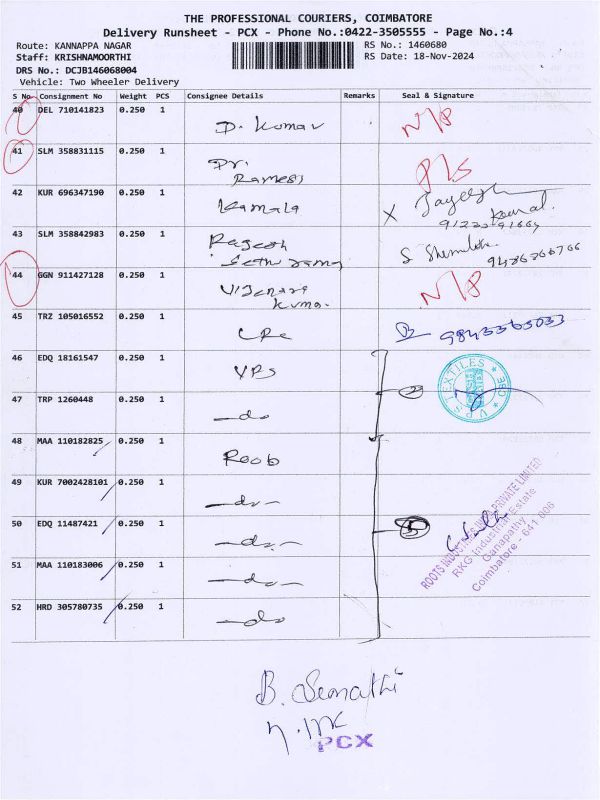 THE PROFESSIONAL COURIERS, COIMBATORE
Delivery Runsheet - PCX - Phone No.:0422-3505555 - Page No.:4
Route: KANNAPPA NAGAR RS No.: 1460680
Staff: KRISHNAMOORTHI RS Date: 18-Nov-2024
DRS No.: DCJB146068004
Vehicle: Two Wheeler Delivery
S No. Consignment No Weight PCS Consignee Details Remarks Seal & Signature
40 DEL 710141823 0.250 1 D. Kumar
41 SLM 358831115 0.250 1 Ramesh
42 KUR 696347190 0.250 1 Kamala
43 SLM 358842983 0.250 1 Rajesh
44 GGN 911427128 0.250 1
45 TRZ 105016552 0.250 1 9843365033
46 EDQ 18161547 0.250 1 VPS
V.P.S TEXTILES
47 TRP 1260448 0.250 1 -do-
48 MAA 110182825 0.250 1 Roob
49 KUR 7002428101 0.250 1 -do-
50 EDQ 11487421 0.250 1 -do- 5
51 MAA 110183006 0.250 1 -do-
52 HRD 305780735 0.250 1 -do-
ROOTS INDUSTRIES INDIA PRIVATE LIMITED
RKG Industrial Estate
Ganapathy
Coimbatore - 641 006
PCX